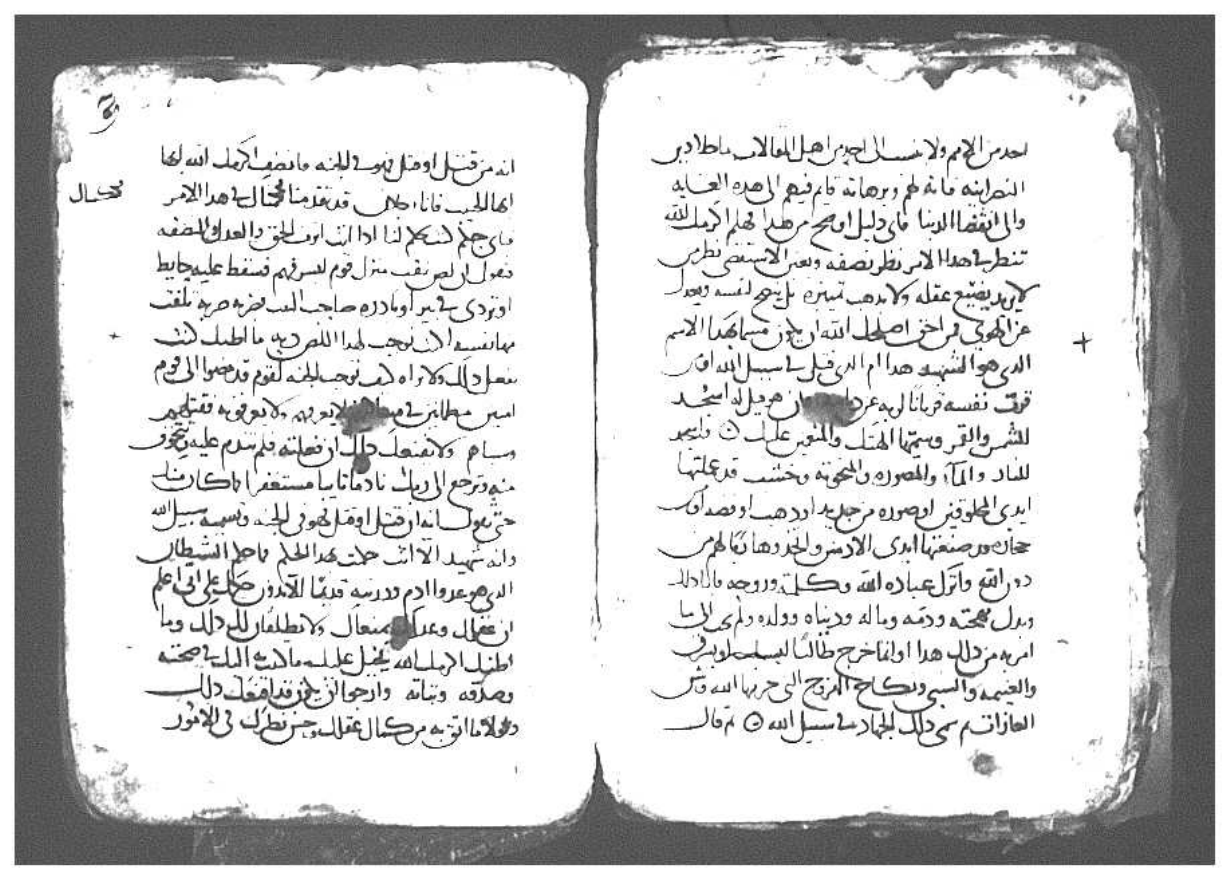 احد من الامم ولا ينسب الى احد من اهل المقالات ما خلا دين
النصرانيه فانه لهم وبرهانه قايم فيهم الى هذه الغايه
والى انقضا الدنيا فاى دليل اوضح من هذا فهلم اكرمك الله
تنظر فى هدا الامر نظر نصفه وبعين الاستقصى نظر من
لا يريد يضيع عقله ولا يذهب تمييزه بل ينصح لنفسه ويعدل
عن الهوى فمن احق اصلحك الله ان يكون مسما بهدا الاسم
الدى هو الشهيد هدا ام الدى قتل فى سبيل الله افمن
قرب نفسه قربانا لربه عن وان هو قيل له اسجد
للشمس والقمر
للنار والمآ والمصوره والمنحوته وخشب قد عملتها
ايدى المخلوقين او صوره من حديد او دهب او فضه او
حجاره قد صنعتها ايدى الادميين واتخدوها الهم من
دون الله واترك عباده الله وكلمته وروحه فابا دلك
وبدل مهجته ودمه وماله ودنياه وولده ولم الى ما
امر به من دلك هدا او انما خرج طالبا
والغنيمه والسبى ونكاح الفروج التى حرمها الله وشن
الغارات ثم سمى دلك الجهاد فى سبيل الله ۞ ثم قال
انه من قتل او قتل فهو فى الجنه فانصف اكرمك الله لها
ايها الحبيب فانا قد قدمنا فى هدا الامر
فاى حكم لنا ادا انت الحق والعدل والنصفه
نقول ان لص نقب منزل قوم ليسرقهم فسقط عليه حايط
او تردى فى بير او بادره صاحب البيت فضربه ضربه تلفت
بها نفسه اكنت توجب لهدا اللص ديه ما اظنك كنت
تفعل دلك ولا تراه كيف توجب الجنه لقوم قد مضوا الى قوم
امنين مطمانين فى لا يعرفهم ولا يعرفونه فقتلهم
وسباهم ولا يقنعك دلك ان فعلته فلم تندم عليه وتخوف
منه وترجع الى ربك نادما تايبا مستغفرا مما كان منك
حتى تقول انه ان قتل او قتل فهو فى الجنه وتسميه سبيل الله
وانه شهيد الا انك حكمت بهدا الحكم كما حكم الشيطان
الدى هو عدوا ادم ودريته قديما للابدون على انى اعلم
ان عقلك وعدلك يمنعاك ولا يطلقان لك دلك وما
اظنك اكرمك الله يخيل عليك مالا يثبت اليك فى صحته
وصدقه وثباته وارجوا ان يكون قد اقنعك دلك
ولولا ما اثق به من كمال عقلك وحسن نظرك فى الامور